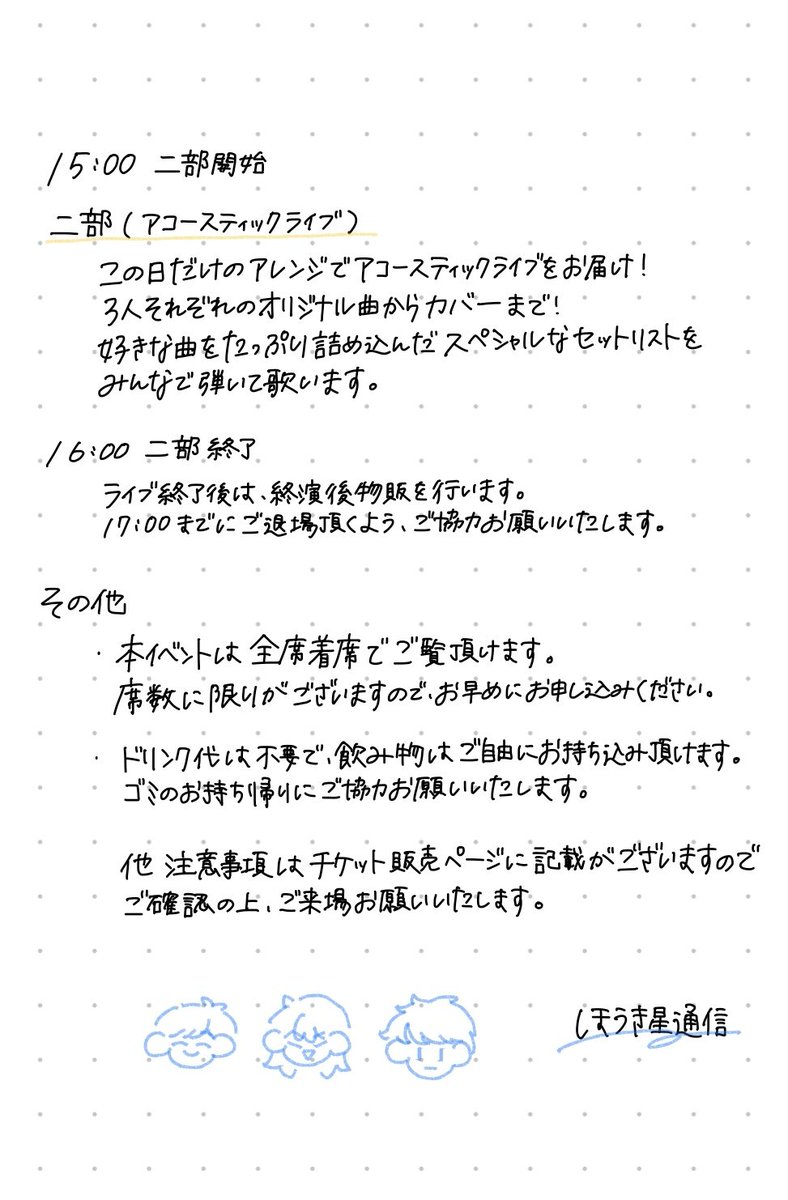 15:00 二部開始
二部(アコースティックライブ)
この日だけのアレンジでアコースティックライブをお届け!
3人それぞれのオリジナル曲からカバーまで!
好きな曲をたっぷり詰め込んだスペシャルなセットリストを
みんなで弾いて歌います。
16:00 二部終了
ライブ終了後は、終演後物販を行います。
17:00までにご退場頂くよう、ご協力お願いいたします。
その他
・本イベントは全席着席でご覧頂けます。
席数に限りがございますので、お早めにお申し込みください。
・ドリンク代は不要で、飲み物はご自由にお持ち込み頂けます。
ゴミのお持ち帰りにご協力お願いいたします。
他 注意事項はチケット販売ページに記載がございますので
ご確認の上、ご来場お願いいたします。
ほうき星通信